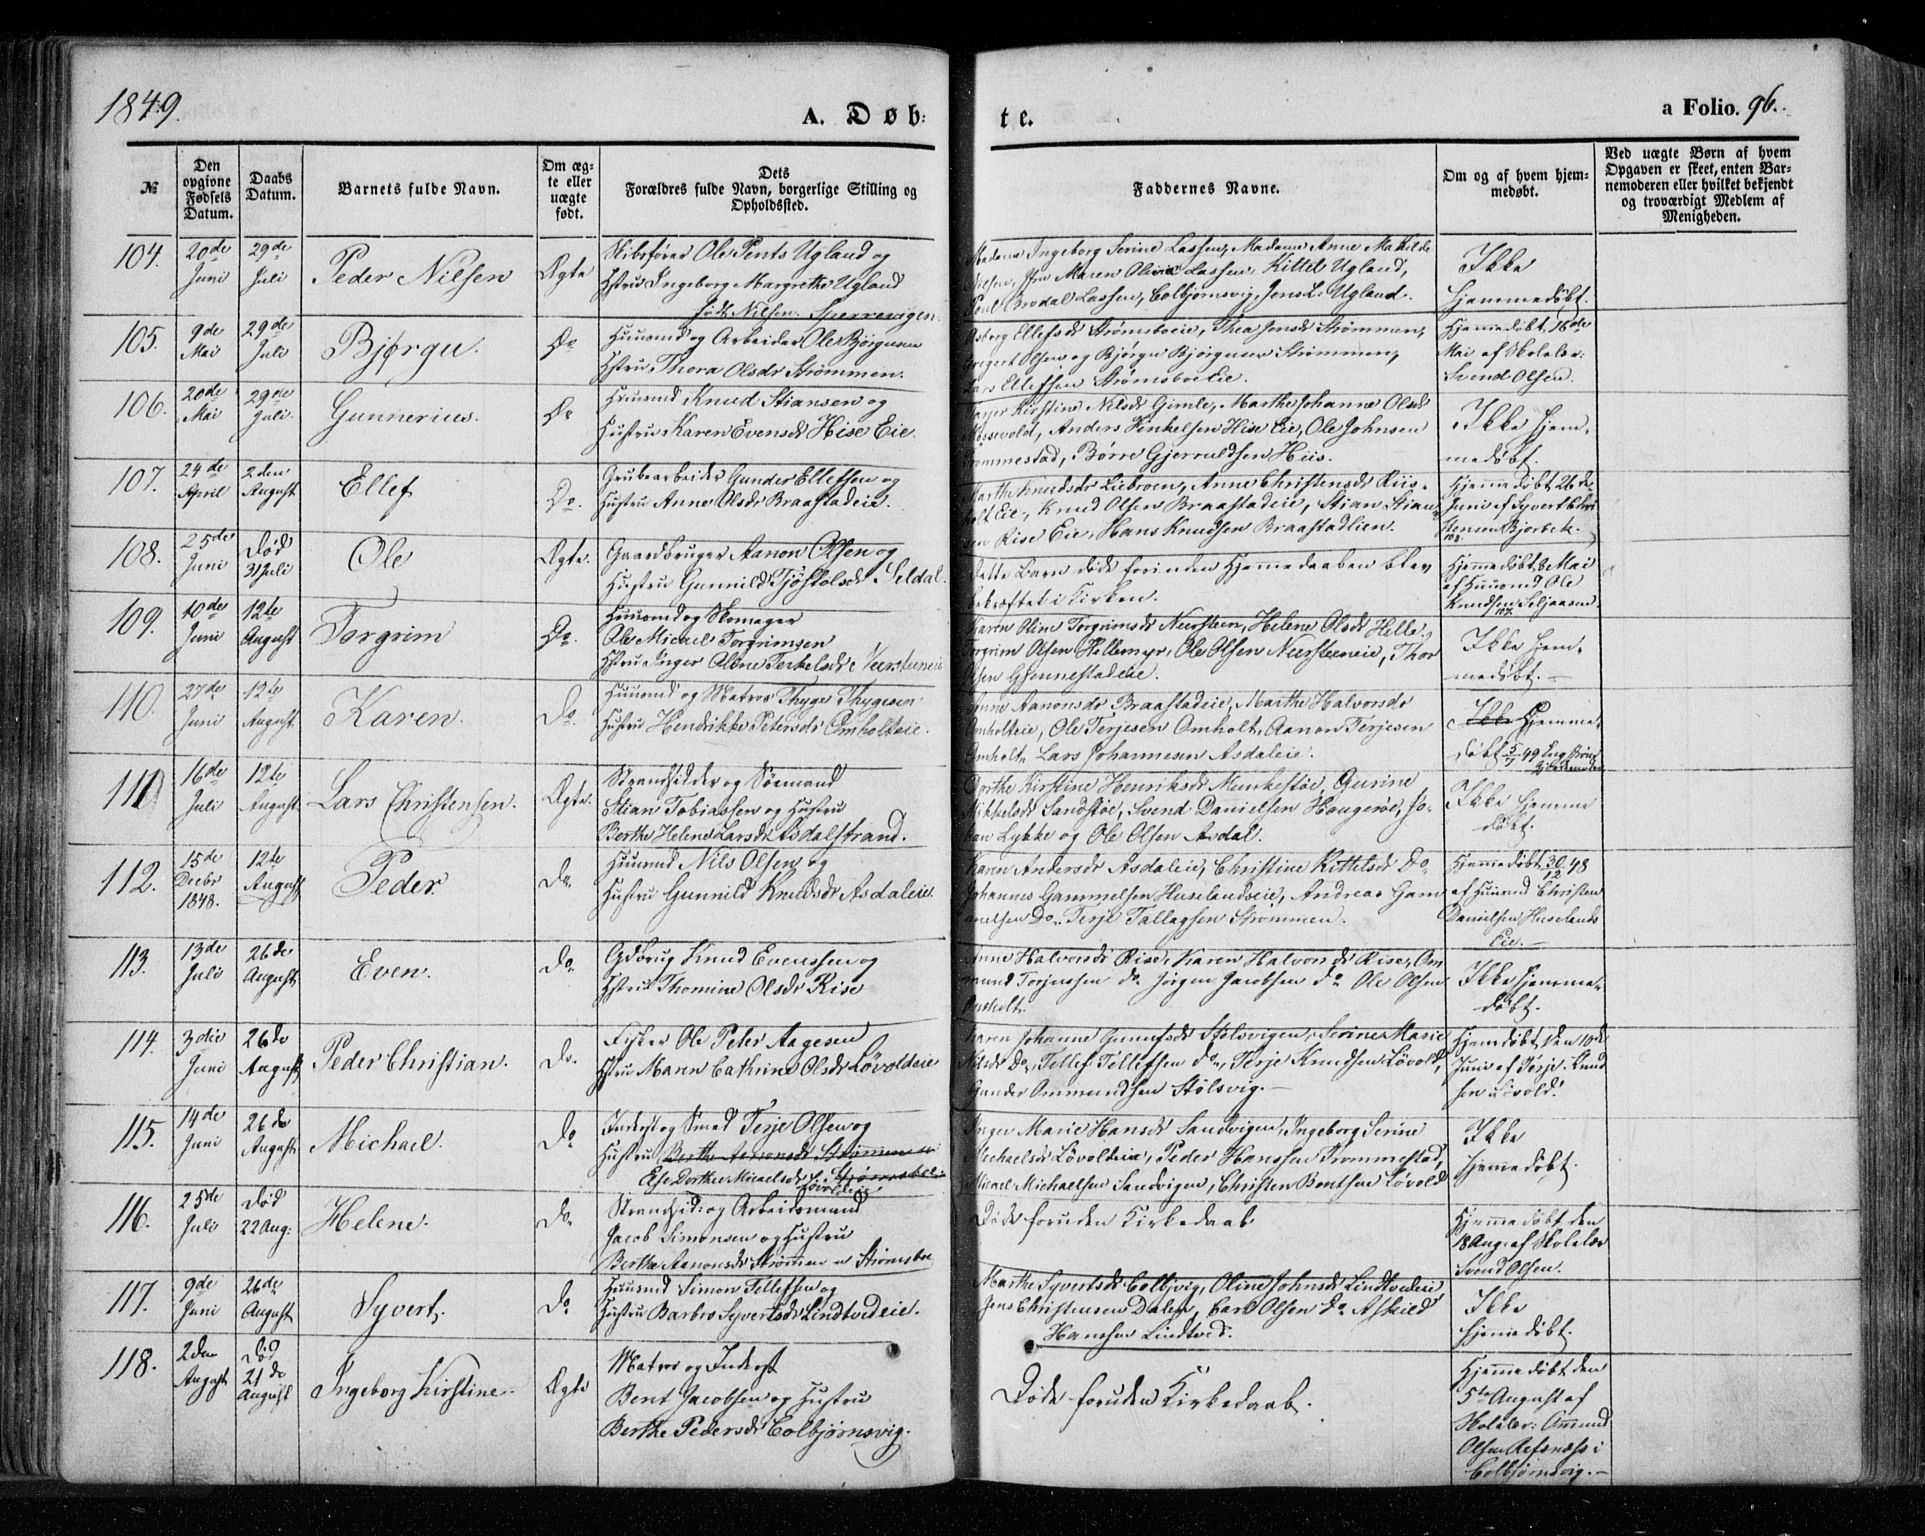 1849.
A. Døb:
te.
a Folio. 96.
№
Den opgivne Fødsels Datum.
Daabs Datum.
Barnets fulde Navn.
Om ægte eller uægte født.
Dets Forældres fulde Navn, borgerlige Stilling og Opholdssted.
Faddernes Navne.
Om og af hvem hjemmedøbt.
Ved uægte Børn af hvem Opgaven er skeet, enten Barnemoderen eller hvilket bekjendt og troværdigt Medlem af Menigheden.
104. 20de Juni 29de Juli Peder Nilsen Ægte
Skibsfører Ole Pents Ugland og
Hstru Ingeborg Margrethe Ugland
født Nilsen. Sperrevigen.
Madame Ingeborg Serine Lassen, Madame Anne Mathilde
Nilsen, Jfr Maren Olivia Lassen, Kittel Ugland,
Poul Brodal Lassen, Colbjørnsvig, Jens L. Ugland.
Ikke
hjemmedøbt.
105. 9de Mai 29de Juli Bjørgu. Do
Huusmd og Arbeider Ole Bjørgusen
Hstru Thora Olsdr Strømmen.
Asborg Ellefsdr Strømsboeie, Thea Jensdr Strømmen,
Gregert Olsen og Bjørgu Bjørgusen Strømmen,
Lars Ellefsen Strømsboe Eie.
Hjemedøbt 16de
Mai af Skolelær:
Svend Olsen.
106. 20de Mai 29de Juli. Gunnerius. Do
Huusmd Knud Stiansen og
Hustru Karen Evensdr Hise Eie.
Kirstine Nilsdr Gimle, Marthe Johanne Olsdr
Mossevold, Anders Hinkelsen Hise Eie, Ole Johnsen
Trommestad, Børre Gjeruldsen Hiis.
Ikke hjem-
medøbt.
107. 24de April 2den August Ellef Do.
Grubearbeider Gunder Ellefsen og
Hustru Anne Olsdr Braastadeie.
Marthe Knudsdr Liebroen, Anne Christensdr Riis-
holt Eie, Knud Olsen Braastadeie, Stian Stian-
sen Rise Eie, Hans Knudsen Braastadlien.
Hjemmedøbt 26de
Juni af Syvert Chri
stensen Bjorbek.
108. 25de Juni Død 31 Juli Ole Ægte.
Gaardbruger Aanon Olsen og
Hustru Gunnild Tjøstolsdr Seldal.
Dette Barn døde forinden Hjemmedaaben blev
bekræftet i Kirken.
108.
Hjemmedøbt 8 Mai
af Huusmd Ole
Knudsen Seljaasen.
109. 10de Juni 12te August Torgrim Do.
Huusmd og Skomager
Ole Michael Torgrimsen
Hstru Inger Oline Terkelsdr Neersteneie
Karen Oline Torgrimsdr Neersteen, Helene Olsdr Helle,
Torgrim Olsen Hellemyr, Ole Olsen Neersteeneie, Thor
Olsen Gjennestadeie.
107.
Ikke hjem-
medøbt.
110. 27de Juni 12te August Karen. Do.
Huusmd og Matros Thyge Thygesen
Hustru Hendrikke Petersdr Omholteie.
Anne Aanonsdr Braastadeie, Marthe Halvorsdr
Omholteie, Ole Terjesen Omholt, Aanon Terjesen
Omholt. Lars Johannesen Asdaleie.
Ikke Hjemme-
døbt 5/7 49
111 16de Juli 12te August Lars Christensen. Ægte.
Strandsidder og Søemand
Stian Tobiassen og Hustru
Berthe Helene Larsdr Asdalstrand.
Dorthe Kirstine Henriksdr Munkestøe, Gurine
Mikkelsdr Sandstøe, Svend Danielsen Haugerøe, Jo-
han Lykke og Ole Olsen Asdal.
Ikke hjemme
døbt.
112. 15de Decbr 1848. 12te August Peder Do.
Huusmd Nils Olsen og
Hustru Gunnild Knudsdr Asdaleie.
Karen Andersdr Asdaleie, Christine Kittelsdr Do
Johannes Gammelsen Huselandseie, Andreas Gam
melsen Do. Terje Tallagsen Strømmen.
Hjemmedøbt 30/12 48
af Huusmd Christen
Danielsen Huselands
Eie.
113. 13de Juli 26de August Even. Do.
Gdbrug Knud Evensen og
Hstru Thomine Olsdr Rise
Anne Halvorsdr Rise, Karen Halvorsdr Rise, Om-
mund Torjussen do Jørgen Jacobsen do Ole Olsen
Omholt.
Ikke hjemme-
døbt.
114. 3die Juni 26de August Peder Christian. Do.
Fisker Ole Peter Aagesen
Hstru Maren Cathrine Olsdr Løvoldeie
Karen Johanne Gunufsdr Stølsvigen, Serine Marie
Nilsdr Do, Tellef Tellefsen do, Terje Knudsen Løvold,
Gunder Ommundsen Stølsvig.
Hjemdøbt den 10de
Juni af Terje Knud
sen Løvold.
115. 14de Juni 26de August Michael. Do
Inderst og Smed Terje Olsen og
Hustru Berthe Aanonsdr Strømmen
Else Dorthea Micaelsdr Strømsboe
Løvoldeie
Inger Marie Hansdr Sandvigen, Ingeborg Serine
Michaelsdr Løvoldeie, Peder Hanssen Trommestad,
Micael Michaelsen Sandvigen, Christen Bentsen Løvold
Ikke
hjemmedøbt.
116. 25de Juli Død 22 Aug: Helene. Do.
Strandsid: og Arbeidsmand
Jacob Simonsen og Hustru
Berthe Aanonsdr Strømmen Strømsboe
Døde foruden Kirkedaab
Hjemmedøbt den
18 Aug af Skolelær
Svend Olsen.
117. 9de Juni 26de August Syvert. Do
Huusmd Simon Tellefsen og
Hustru Barbro Syvertsdr Lindtvedeie.
Marthe Syvertsdr Colbjvig, Oline Johnsdr Lindtvedeie
Jens Christensen Dalen, Carl Olsen do Askild
Hanssen Lindtved.
Ikke
hjemedøbt.
118. 2den August Død 21de August Ingeborg Kirstine. Ægte
Matros og Inderst
Bent Jacobsen og Hustru
Berthe Pedersdr Colbjørnsvig.
Døde foruden Kirkedaab.
Hjemmedøbt den
5te August af
Skolelær: Ommund
Olsen Refsnæss i
Colbjørnsvig.